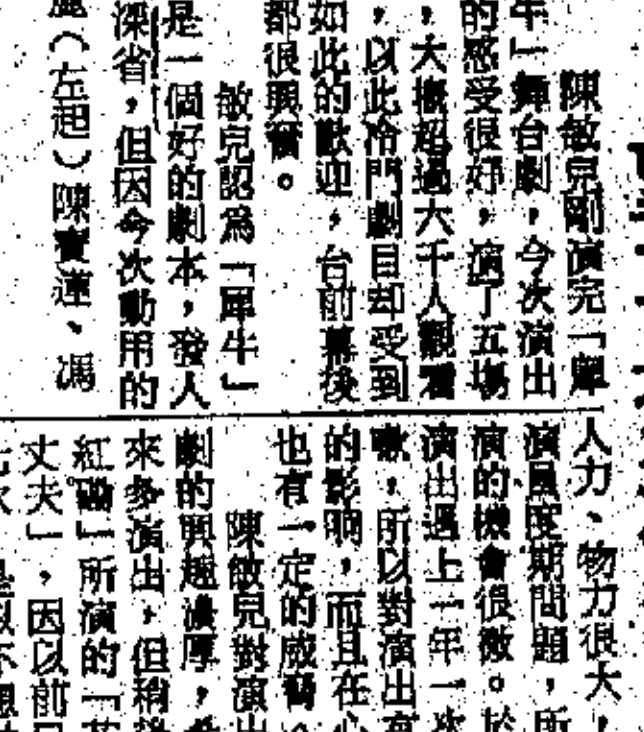 陳敏兒剛演完「犀
牛」舞台劇，今次演出
的感受很好，演了五場
，大概超過六千人觀看
，以此冷門劇目却受到
如此的歡迎，台前幕後
都很興奮。
敏兒認為「犀牛」
是一個好的劇本，發人
深省，但因今次動用的
人力、物力很大，
演風度期問題，所
演的機會很微。於
演出遇上一年一次
嗽，所以對演出有
的影响，而且在心
也有一定的威脅。
陳敏兒對演出
劇的興趣濃厚，希
來多演出，但稍後
紅磡」所演的「
丈夫」，因以前
麗（左起）陳寶蓮、馮